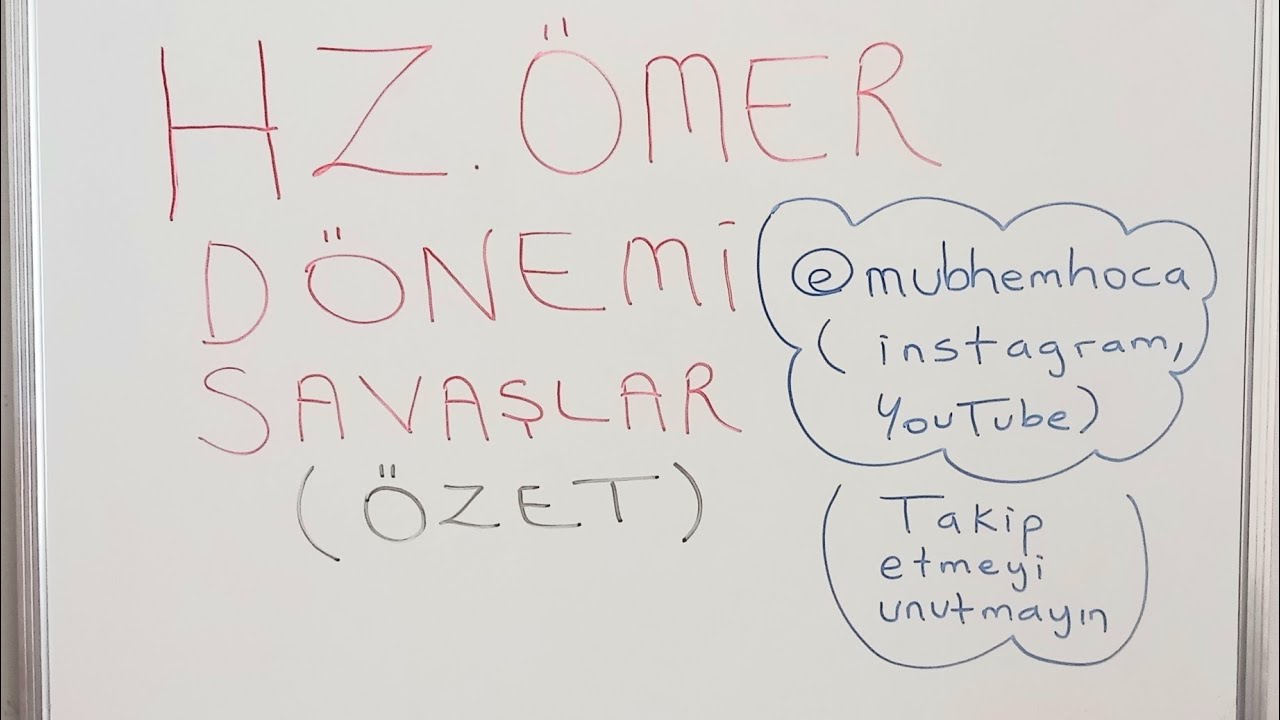 HZ. ÖMER
DÖNEMİ
SAVAŞLAR
(ÖZET)
@mubhemhoca
(instagram,
YouTube)
(Takip
etmeyi
unutmayın)